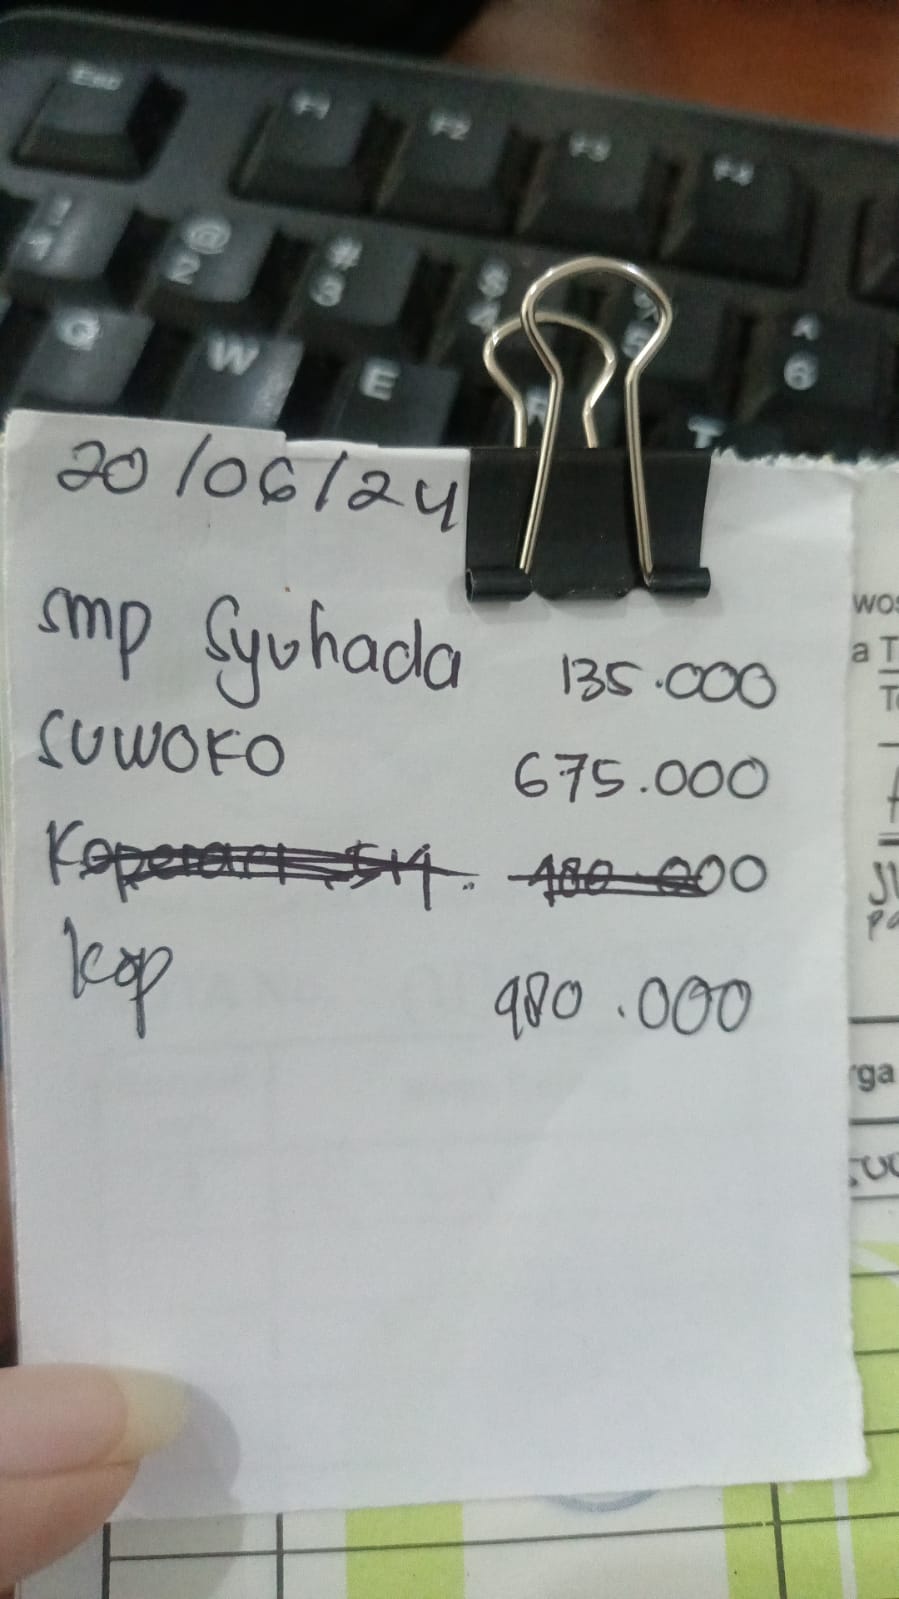 Esc F1 F2 F3 F4
! 1 @ 2 # 3 $ 4 % 5 ^ 6
Q W E R T
20/06/24
smp Syuhada 135.000
SUWOKO 675.000
480.000
kop 980.000
wos
a T
rga